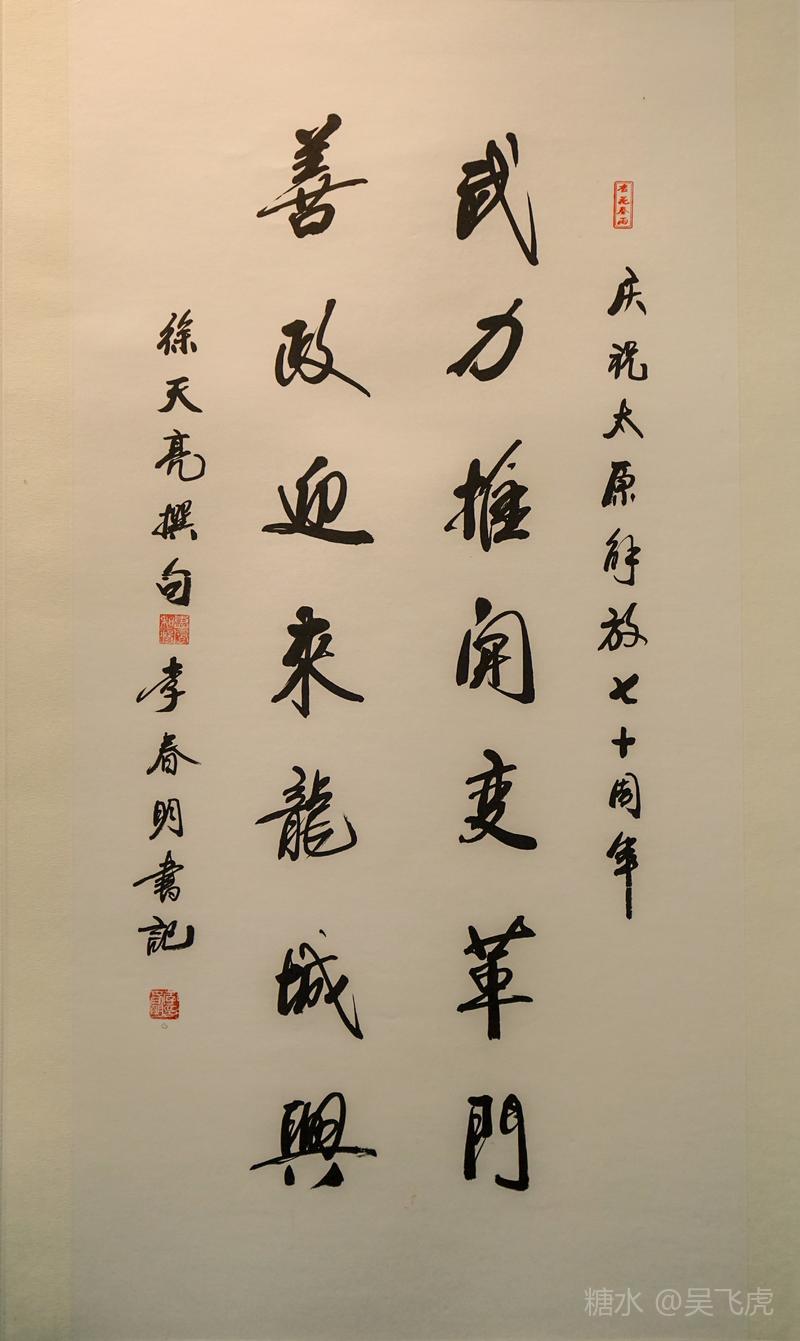 杏花春雨
庆祝太原解放七十周年
武力推开变革門
善政迎來龍城興
徐天亮撰句
李春明書記
糖水 @吴飞虎